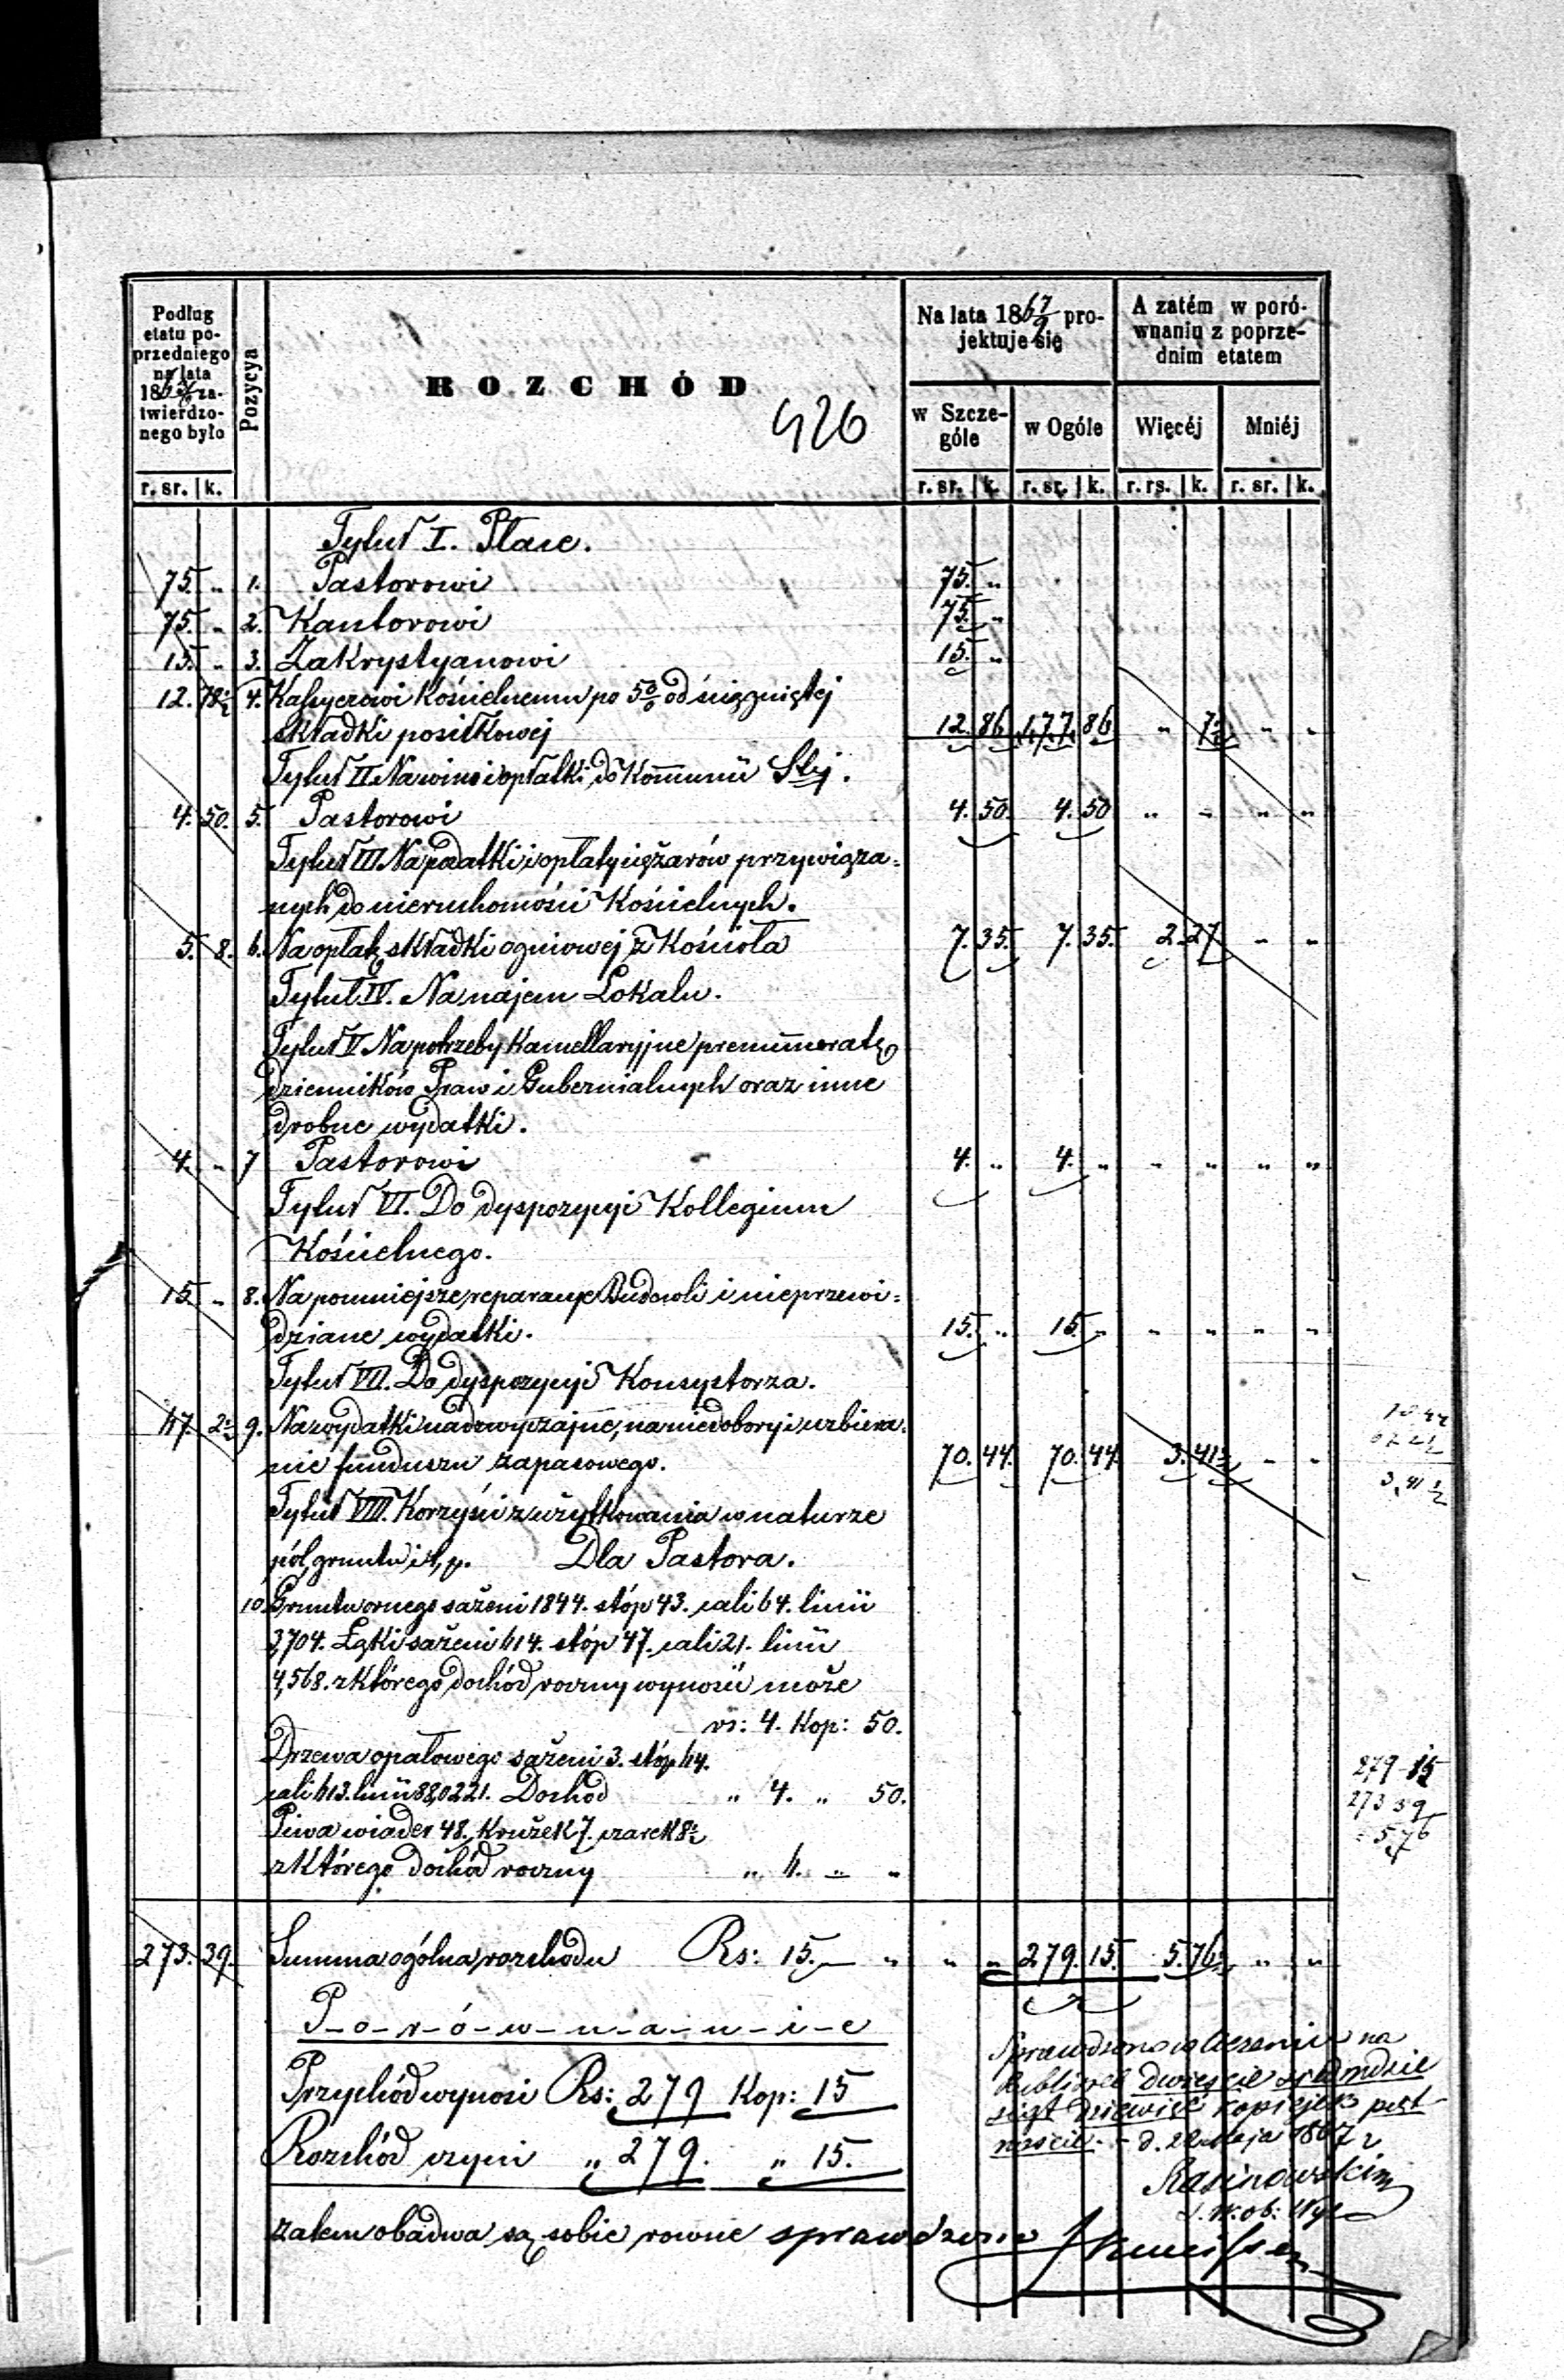 Podług
etatu po-
przedniego
na lata
18 za-
twierdzo-
nego było
Pozycya
ROZCHÓD
426
Na lata 1867/9 pro-
jektuje się
A zatém w poró-
wnaniu z poprze-
dnim etatem
w Szcze-
góle
w Ogóle
Więcéj
Mniéj
r. sr. k. r. sr. k. r. sr. k. r. rs. k. r. sr. k.
Tytuł I. Płace.
75. " 1. Pastorowi 75. "
75. " 2. Kantorowi 75. "
15. " 3. Zakrystyanowi 15. "
12. 78½ 4. Kassyerowi Kościelnemu po 5% od ściągniętej
składki posiłkowej 12. 86 177. 86 " 7½ " "
Tytuł II Na wino i opłatki do Kommunii Stej.
4. 50. 5. Pastorowi 4. 50. 4. 50 " " " "
Tytuł III Na podatki i opłaty ciężarów przywiąza=
nych do nieruchomości Kościelnych.
5. 8. 6. Na opłatę składki ogniowej z Kościoła 7. 35. 7. 35. 2. 27 " "
Tytuł IV. Na najem Lokalu.
Tytuł V Na potrzeby Kancellaryjne prenumeratę
dzienników Praw i Gubernialnych oraz inne
drobne wydatki.
4. " 7 Pastorowi 4. " 4. " " " " "
Tytuł VI. Do dyspozycyi Kollegium
Kościelnego.
15. " 8. Na pomniejsze reparacye Budowli i nieprzewi=
dziane wydatki. 15. " 15. " " " " "
Tytuł VII. Do dyspozycyi Konsystorza.
67. 2½ 9. Na wydatki nadzwyczajne, na niedobory i uzbiera=
nie funduszu zapasowego. 70. 44. 70. 44. 3. 41½ " "
3,41½
Tytuł VIII. Korzyści z użytkowania w naturze
pól, gruntu i t. p. Dla Pastora.
10. Gruntu ornego sażeni 1844. stóp 43. cali 64. linii
3,704. Łąki sażeni 614. stóp 47. cali 21. linii
4,568. z którego dochód roczny wynosić może
rs: 4. Kop: 50.
Drzewa opałowego sażeni 3. stóp 64.
cali 613. linii 88,0221. Dochód " 4. " 50.
Piwa wiader 48. Krużek 7. czarek 8½
z którego dochód roczny " 6. " "
279 15
273 39
5,76
273. 39. Summa ogólna rozchodu Rs: 15. " " " 279. 15. 5. 76 " "
P-o-r-ó-w-n-a-n-i-e
Przychód wynosi Rs: 279 Kop: 15
Rozchód czyni " 279. " 15.
zatem obadwa są sobie rowne sprawdzono
Sprawdzono w liczeniu na
Rubli sreb dwieście siedmdzie
siąt dziewięć kopiejek pięt
naście. d. Maja 1867 r